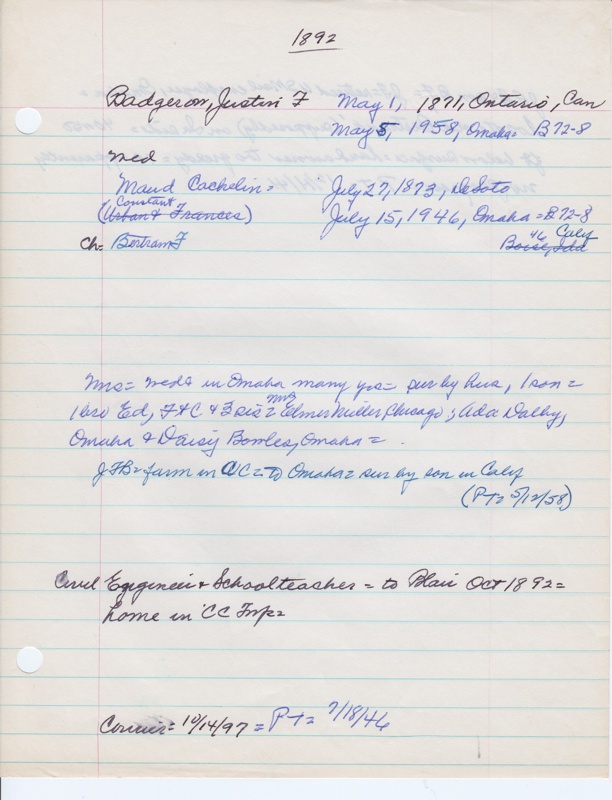 1892
Badgerow, Justin F May 1, 1871, Ontario, Can
May 5, 1958, Omaha= B72-8
med
Maud Cachelin= July 27, 1873, DeSoto
Constant
(Urban & Frances) July 15, 1946, Omaha = B72-8
46 Calif
Ch= Bertram F Boise, Ida
Mrs= med& in Omaha many yrs= sur by hus, 1 son=
mrs
1 bro Ed, F & C & 3 sis= Elmer Miller Chicago; Ada Dalby,
Omaha & Daisy Bowles, Omaha=
JFB= farm in CC= to Omaha= sur by son in Calif
(PT= 5/12/58)
Civil Engineer & Schoolteacher = to Blair Oct 1892=
home in CC Twp=
Courier= 10/14/97 = PT= 7/18/46